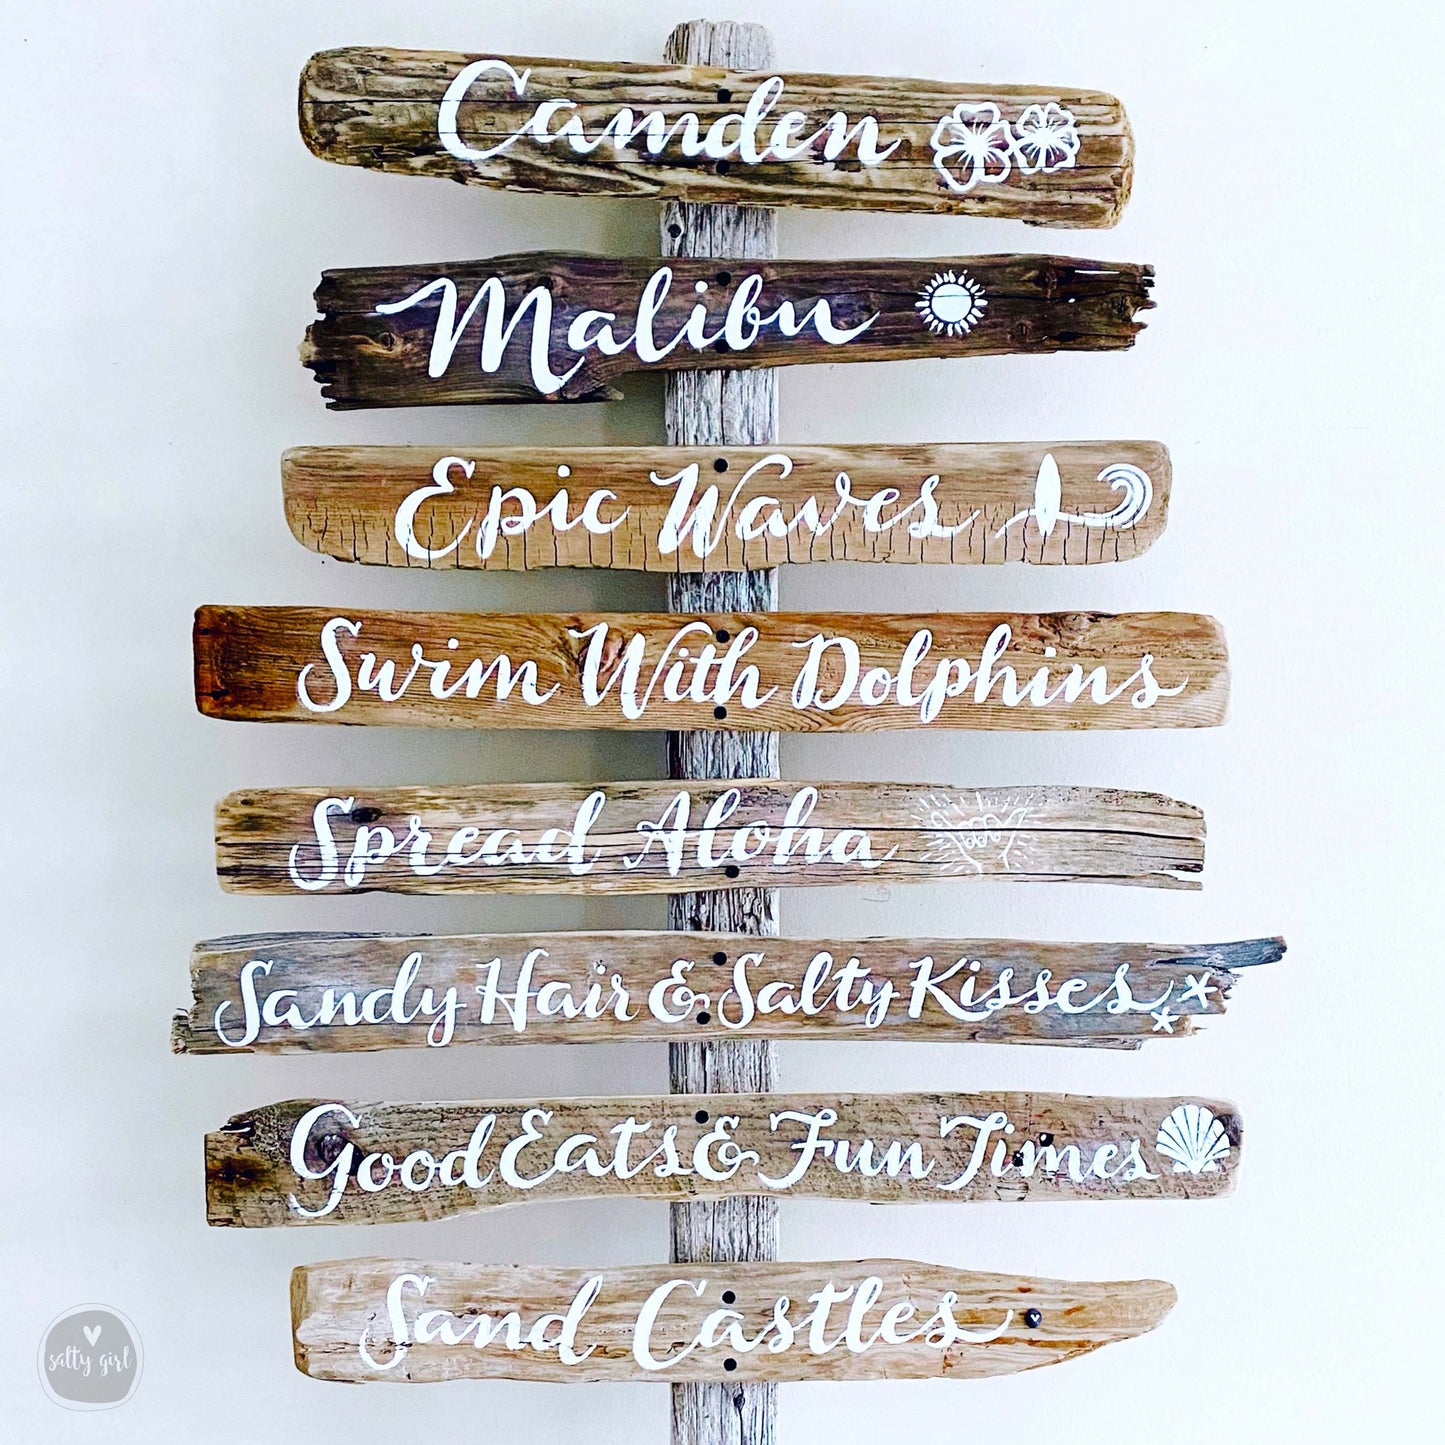 Camden
Malibu
Epic Waves
Swim With Dolphins
Spread Aloha
Sandy Hair & Salty Kisses
Good Eats & Fun Times
Sand Castles
salty girl